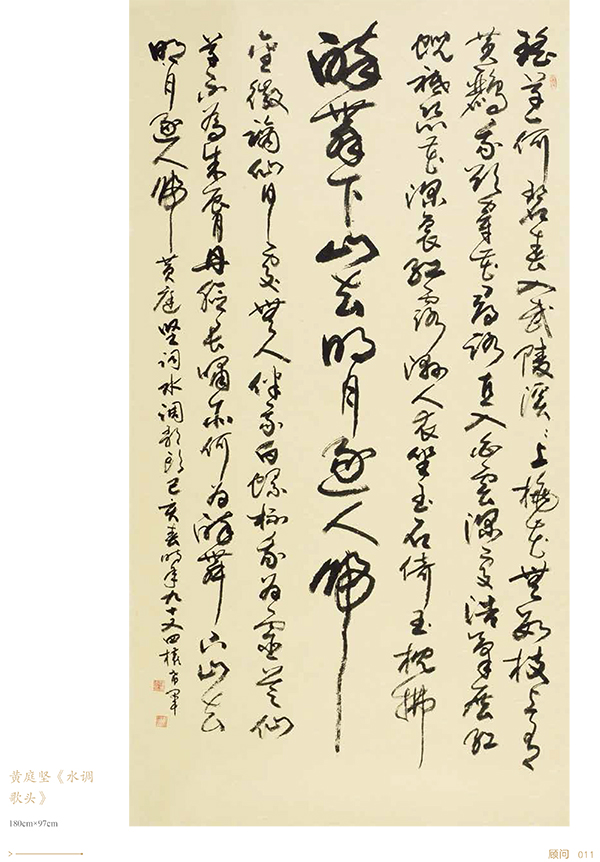 瑶草一何碧春入武陵溪〻上桃花無数枝上有
黄鹂我欲穿花寻路直入白雲深處浩氣展虹
霓祗恐花深里红露濕人衣坐玉石倚玉枕拂
醉舞下山去明月逐人歸
金徽謫仙何處無人伴我白螺杯我为靈芝仙
草不为朱唇丹脸长嘯亦何为醉舞下山去
明月逐人歸 黄庭坚词水调歌头己亥春时年九十又四
黄庭坚《水调
歌头》
180cm×97cm
顾问 011